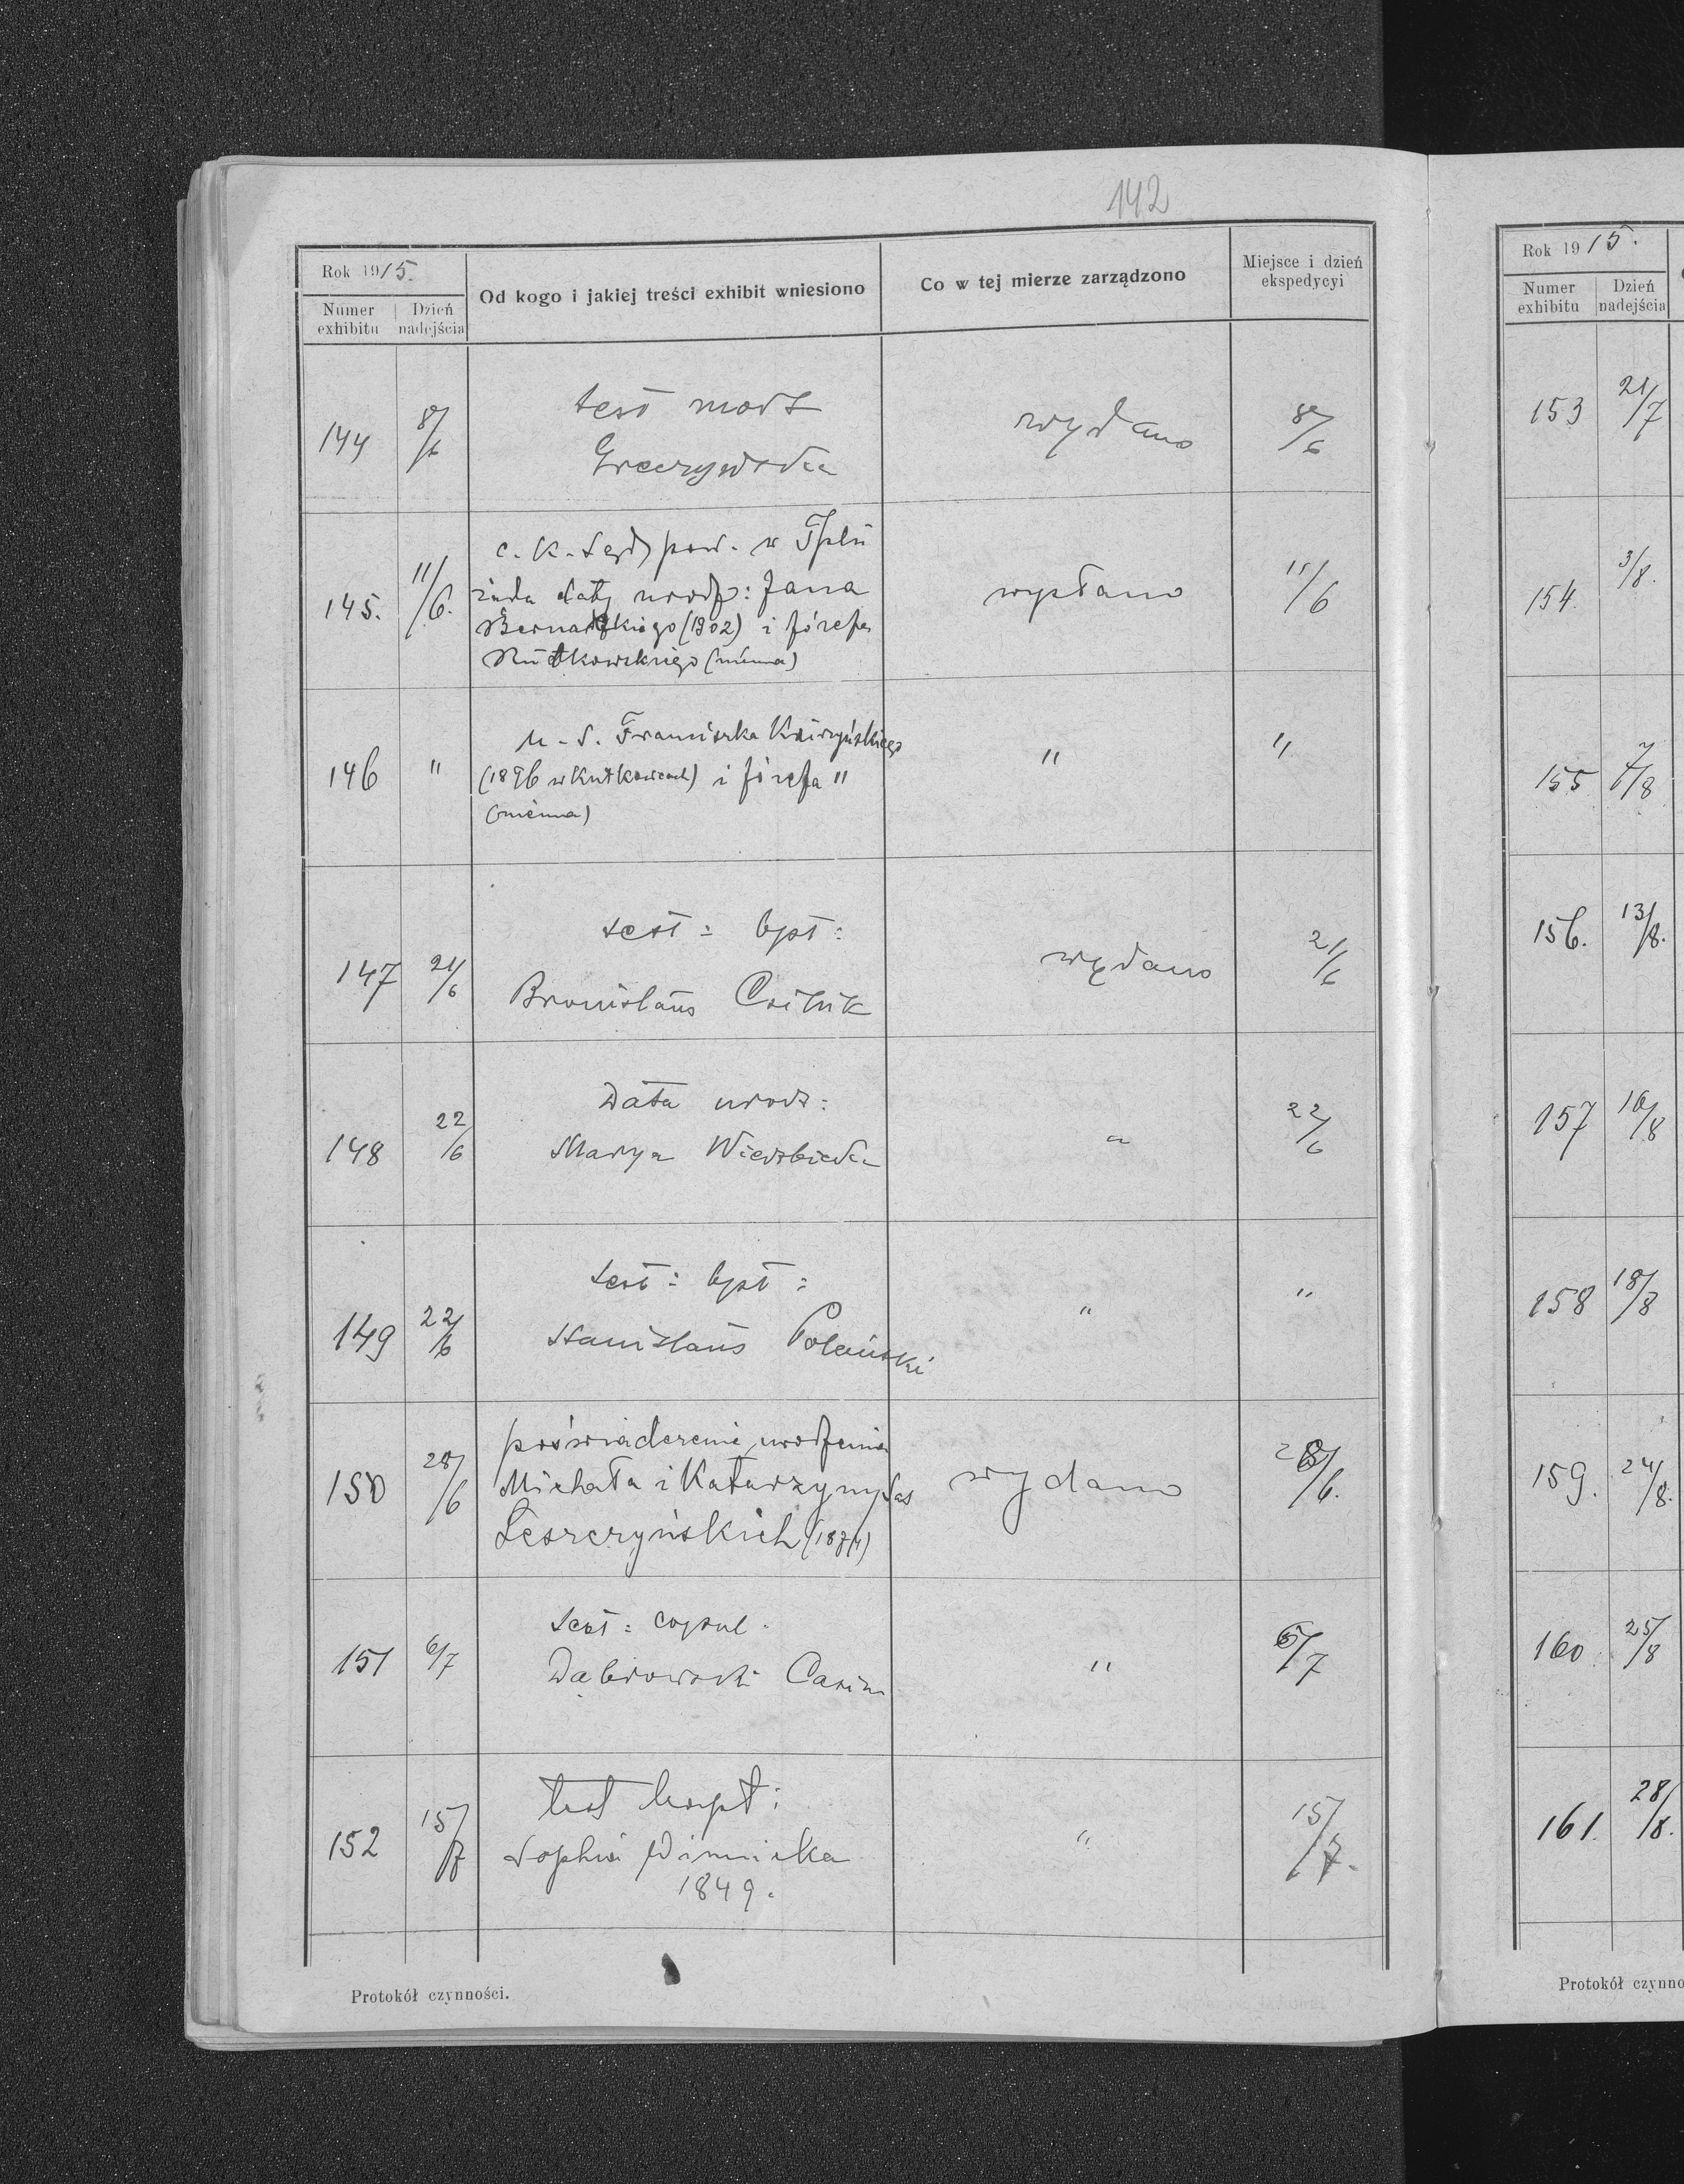 142
Rok 1915.
Numer exhibitu
Dzień nadejścia
Od kogo i jakiej treści exhibit wniesiono
Co w tej mierze zarządzono
Miejsce i dzień ekspedycyi
144 8/6 test mort wydano 8/6
145. 11/6. c. k. Sąd pow. w Tplu wysłano 11/6
żąda daty urodz: Jana
(1902) i Józefa
Rutkowskiego (niema)
146 " u. s. Franciszka " "
(1896 w Kutkowcach) i Józefa "
(niema)
147 21/6 test: bpt: wydano 21/6
Bronislaus
148 22/6 Data urodz: " 22/6
Marya Wierzbicka
149 22/6 test: bpt: " "
Stanislaus Polański
150 28/6 poświadczenie urodzenia wydano 28/6.
Michała i Katarzyny
Leszczyńskich
151 6/7 test: copul. " 6/7
Dąbrowski Casim
152 15/7 test bapt: " 15/7.
Sophia Winnicka
1849.
Protokół czynności.
Rok 1915.
Numer exhibitu
Dzień nadejścia
153 21/7
154. 3/8.
155 7/8
156. 13/8.
157 16/8
158 18/8
159. 24/8.
160 25/8
161. 28/8.
Protokół czynno